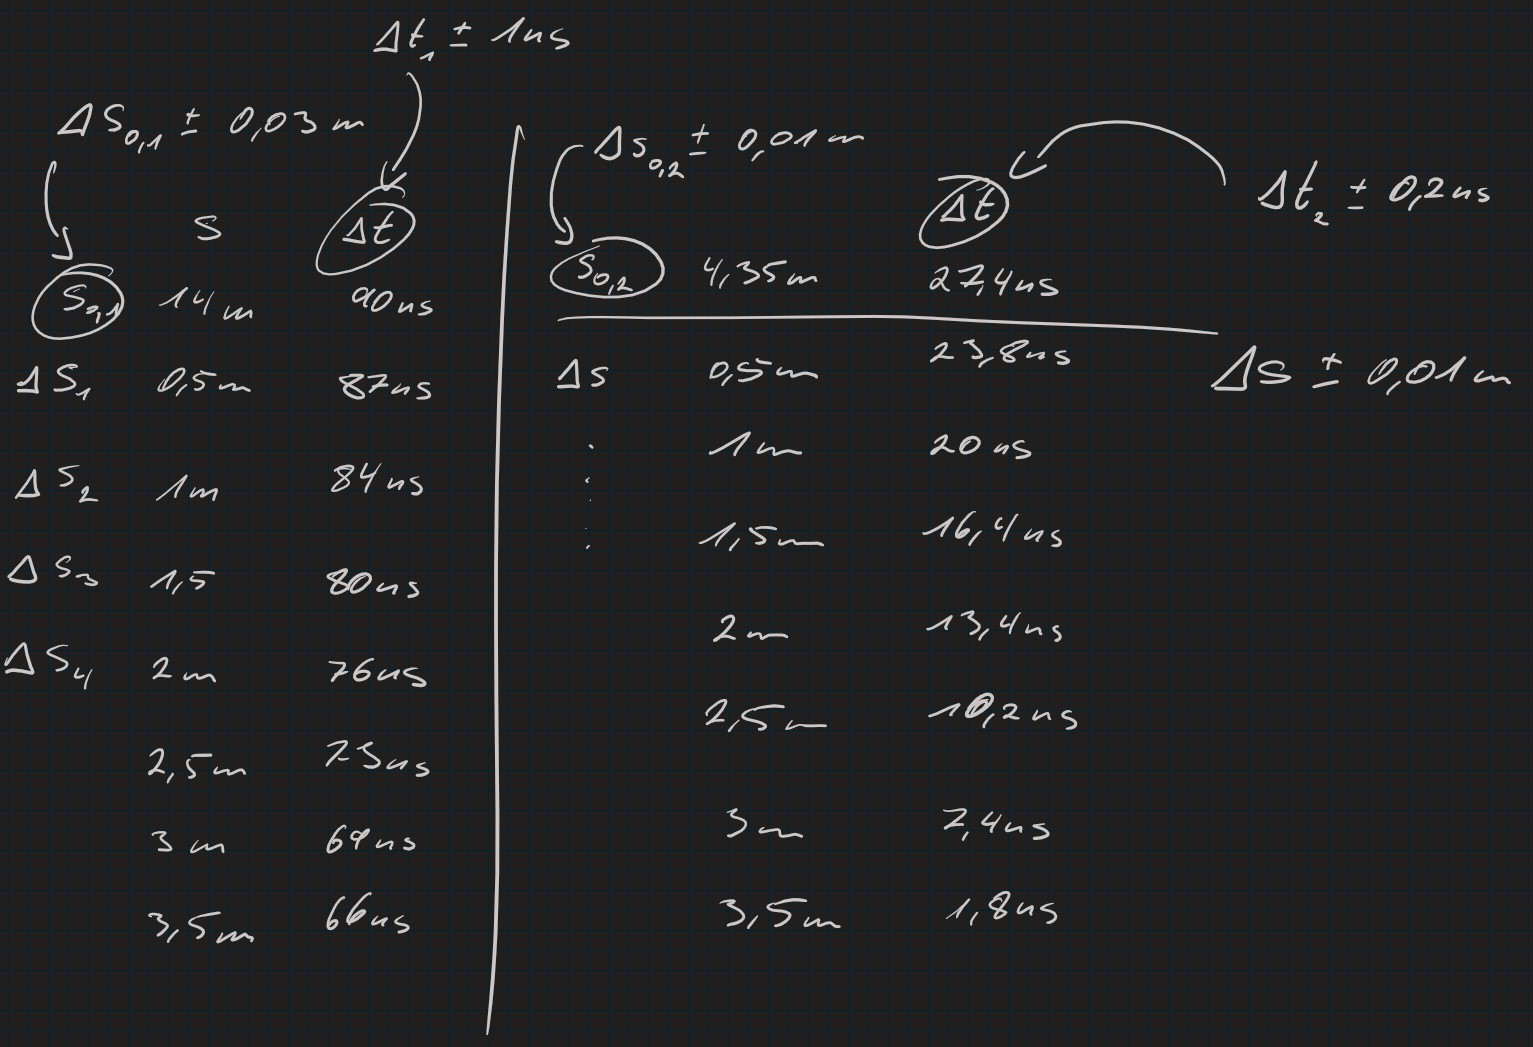 Δt₁ ± 1ns
ΔS₀,₁ ± 0,03 m
S Δt
S₀,₁ 14m 90ns
ΔS₁ 0,5m 87ns
ΔS₂ 1m 84ns
ΔS₃ 1,5 80ns
ΔS₄ 2m 76ns
2,5m 73ns
3m 69ns
3,5m 66ns
Δs₀,₂ ± 0,01m
Δt
Δt₂ ± 0,2ns
S₀,₂ 4,35m 27,4ns
Δs 0,5m 23,8ns
Δs ± 0,01m
1m 20ns
1,5m 16,4ns
2m 13,4ns
2,5m 10,2ns
3m 7,4ns
3,5m 1,8ns